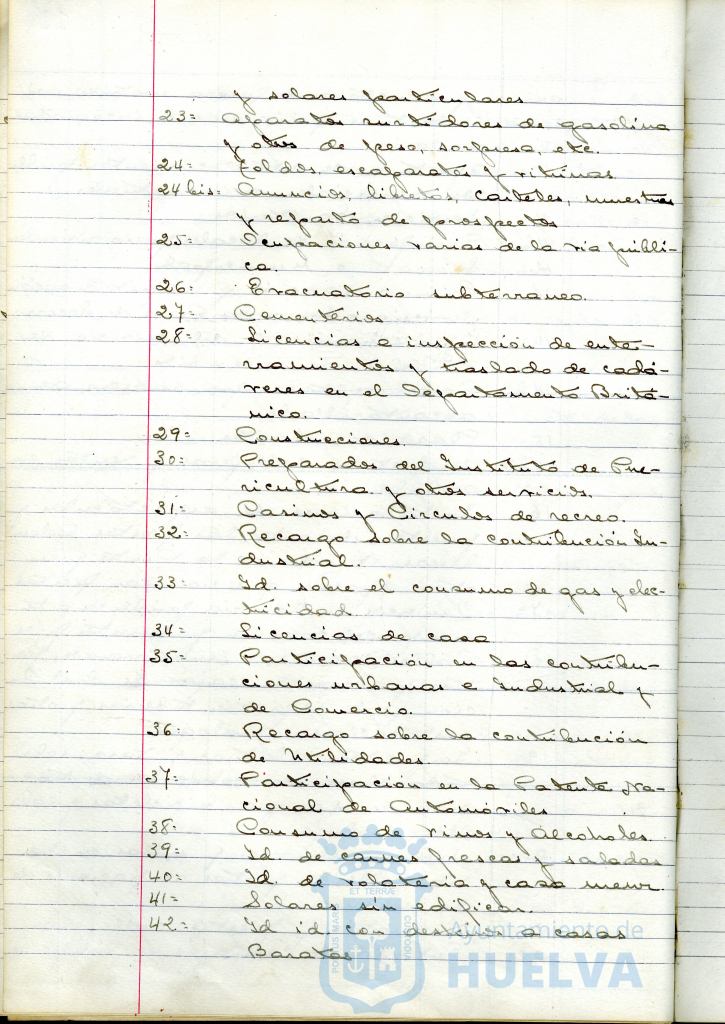 y solares particulares
23= Aparatos surtidores de gasolina
y otros de peso, sorpresa, etc.
24= Toldos, escaparates y vitrinas
24 bis= Anuncios, libretos, carteles, muestras
y reparto de prospectos
25= Ocupaciones varias de la via públi-
ca.
26= Evacuatorio subterraneo.
27= Cementerios
28= Licencias e inspección de ente-
rramientos y traslado de cadá-
veres en el Departamento Britá-
nico.
29= Construcciones.
30= Preparados del Instituto de Pue-
ricultura y otros servicios.
31= Casinos y Circulos de recreo.
32= Recargo sobre la contribución In-
dustrial.
33= Id. sobre el consumo de gas y elec-
tricidad
34= Licencias de caza
35= Participación en las contribu-
ciones urbanas e Industrial y
de Comercio.
36= Recargo sobre la contribución
de Utilidades
37= Participación en la Patente Na-
cional de Automóviles
38= Consumo de vinos y Alcoholes.
39= Id. de carnes frescas y saladas
40= Id. de volateria y caza menor.
41= Solares sin edificar.
42= Id id con destino a casas
Baratas
PORTUS MARIS ET TERRÆ CUSTODIA
Ayuntamiento de
HUELVA